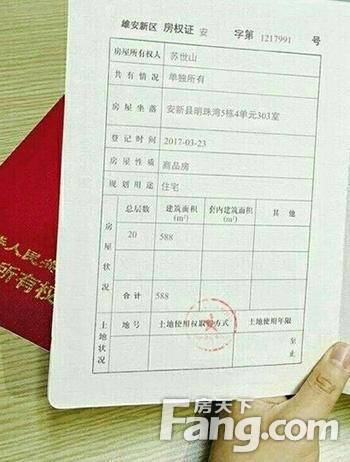 雄安新区 房权证 安 字第 1217991 号
房屋所有权人 苏世山
共有情况 单独所有
房屋坐落 安新县明珠湾5栋4单元303室
登记时间 2017-03-23
房屋性质 商品房
规划用途 住宅
房屋状况
总层数 建筑面积(m²) 套内建筑面积(m²) 其他
20 588
合计 588
土地状况
地号 土地使用权取得方式 土地使用年限
至
止
华人民
所有权
房天下
Fang.com